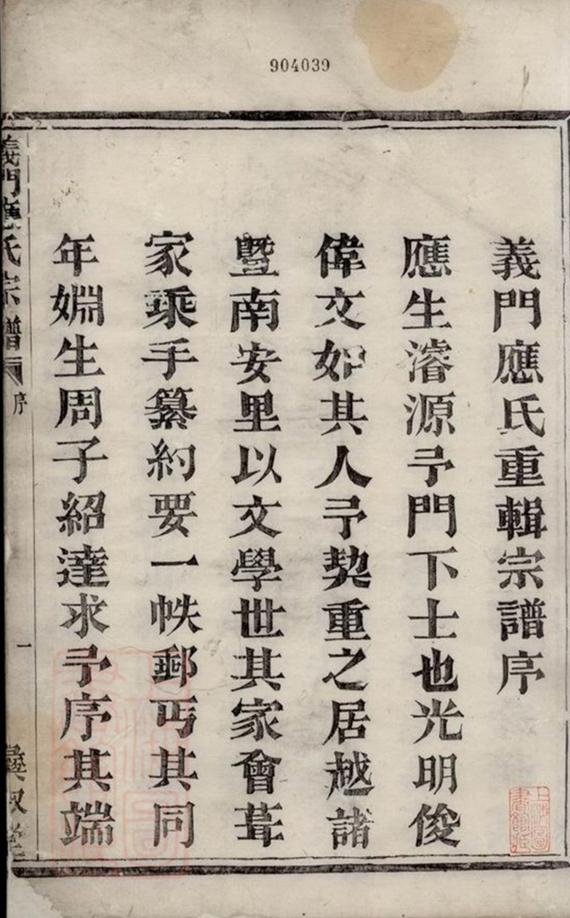 904039
義門應氏重輯宗譜序
應生濬源予門下士也光明俊
偉文如其人予契重之居越諸
暨南安里以文學世其家會葺
家乘手纂約要一帙郵丐其同
年婣生周子紹達求予序其端
義門應氏宗譜
序
一
彝叙堂